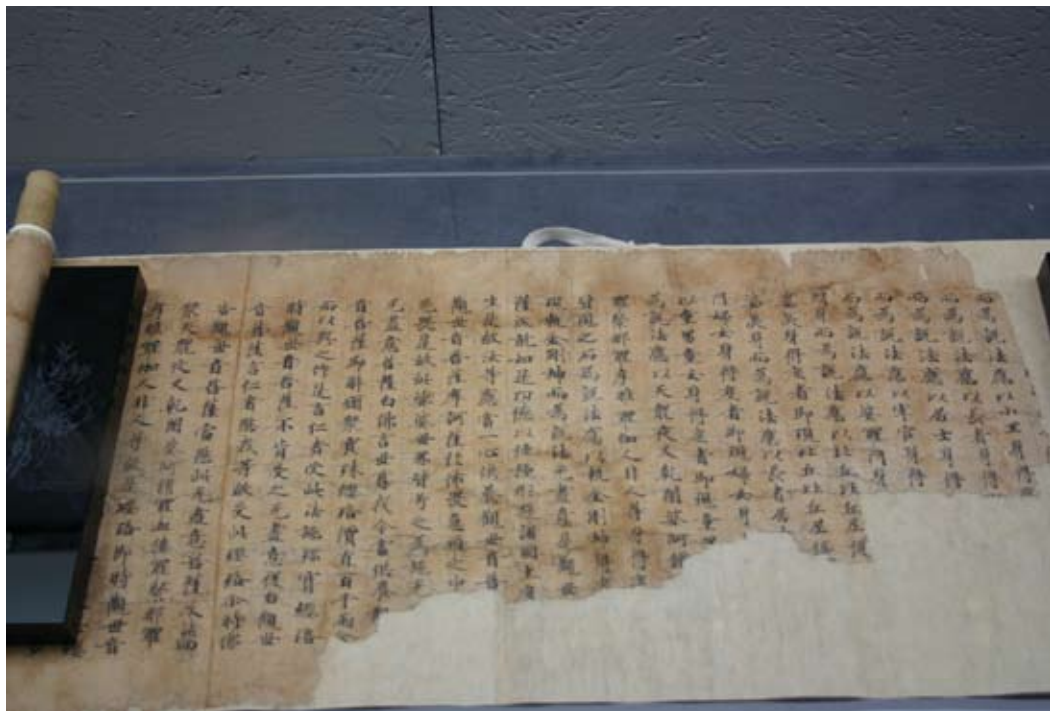 而為說法應以小王身得
而為說法應以長者身得
而為說法應以居士身得
而為說法應以宰官身得
而為說法應以婆羅門身得
身而為說法應以比丘比丘尼優
婆夷身得度者即現比丘比丘尼優
婆夷身而為說法應以長者居
婦女身得度者即現婦女身
以童男童女身得度者即現童
為說法應以天龍夜叉乾闥婆阿脩
緊那羅摩睺羅伽人非人等身得度
皆現之而為說法應以執金剛神得度
現執金剛神而為說法无盡意是觀世
薩成就如是功德以種種形遊諸國土度
生是故汝等應當一心供養觀世音菩
觀世音菩薩摩訶薩於怖畏急難之中
无畏是故此娑婆世界皆号之為施无
无盡意菩薩白佛言世尊我今當供養觀
音菩薩即解頸眾寶珠瓔珞價直百千兩金
而以與之作是言仁者受此法施珍寶瓔珞
時觀世音菩薩不肯受之无盡意復白觀世
音菩薩言仁者愍我等故受此瓔珞尒時佛
告觀世音菩薩當愍此无盡意菩薩及四
眾天龍夜叉乾闥婆阿脩羅迦樓羅緊那羅
摩睺羅伽人非人等故受是瓔珞即時觀世音